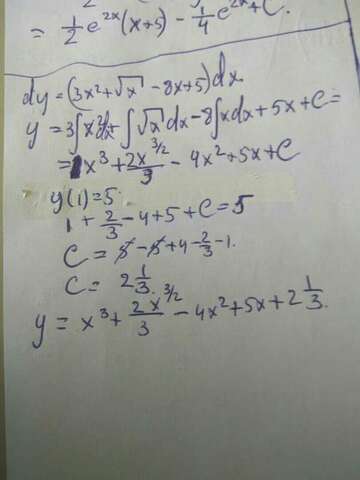 = 1/2 e^{2x}(x+5) - 1/4 e^{2x} + C.
dy = (3x² + √x - 8x + 5) dx
y = 3∫x²dx + ∫√x dx - 8∫x dx + 5x + C =
= x³ + 2x^{3/2}/3 - 4x² + 5x + C
y(1) = 5
1 + 2/3 - 4 + 5 + C = 5
C = 5 - 5 + 4 - 2/3 - 1.
C = 2 1/3.
y = x³ + 2x^{3/2}/3 - 4x² + 5x + 2 1/3.